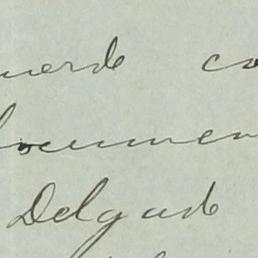 uerdo co
documen
Delgado